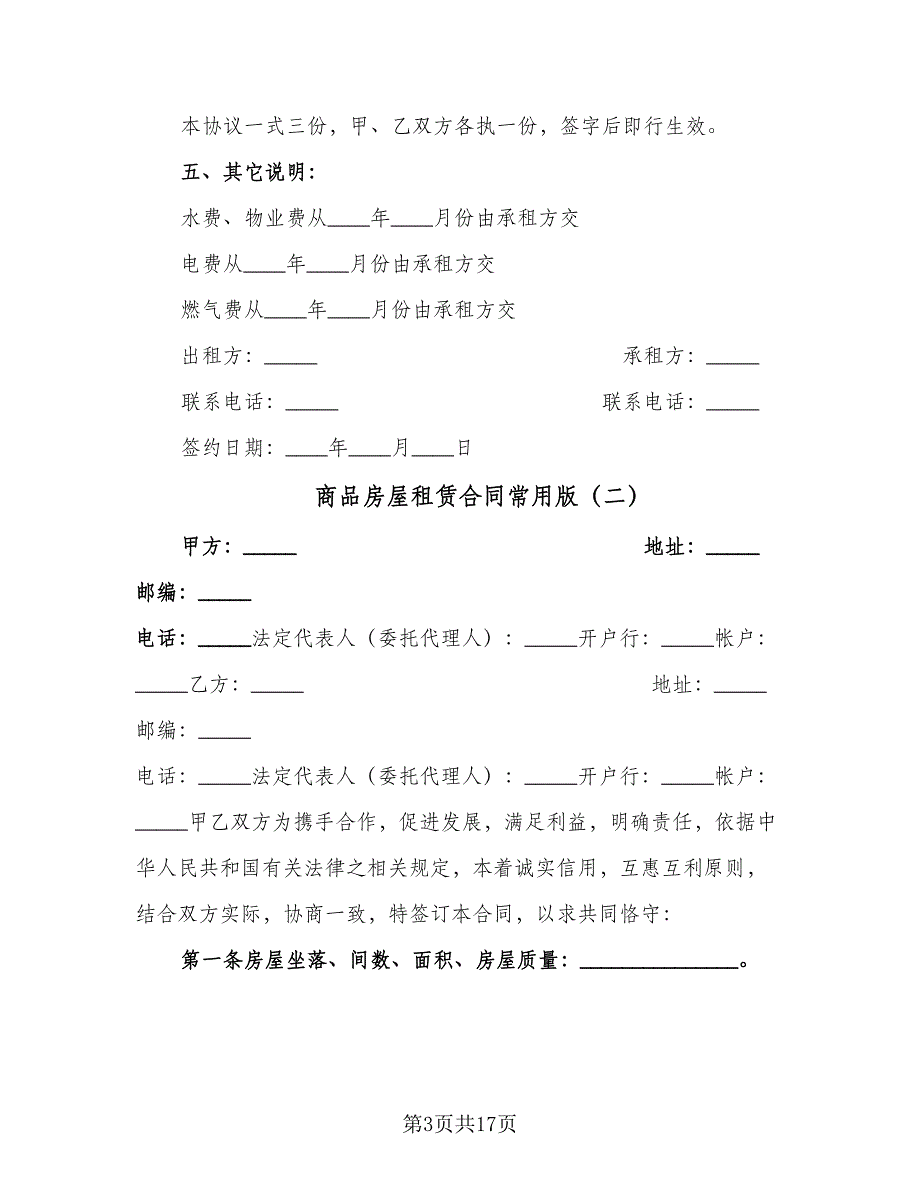 本协议一式三份，甲、乙双方各执一份，签字后即行生效。
五、其它说明：
水费、物业费从____年____月份由承租方交
电费从____年____月份由承租方交
燃气费从____年____月份由承租方交
出租方：_____ 承租方：_____
联系电话：_____ 联系电话：_____
签约日期：____年____月____日
商品房屋租赁合同常用版（二）
甲方：_____ 地址：_____
邮编：_____
电话：_____法定代表人（委托代理人）：_____开户行：_____帐户：
_____乙方：_____ 地址：_____
邮编：_____
电话：_____法定代表人（委托代理人）：_____开户行：_____帐户：
_____甲乙双方为携手合作，促进发展，满足利益，明确责任，依据中
华人民共和国有关法律之相关规定，本着诚实信用，互惠互利原则，
结合双方实际，协商一致，特签订本合同，以求共同恪守：
第一条房屋坐落、间数、面积、房屋质量：_______________。
第3页共17页